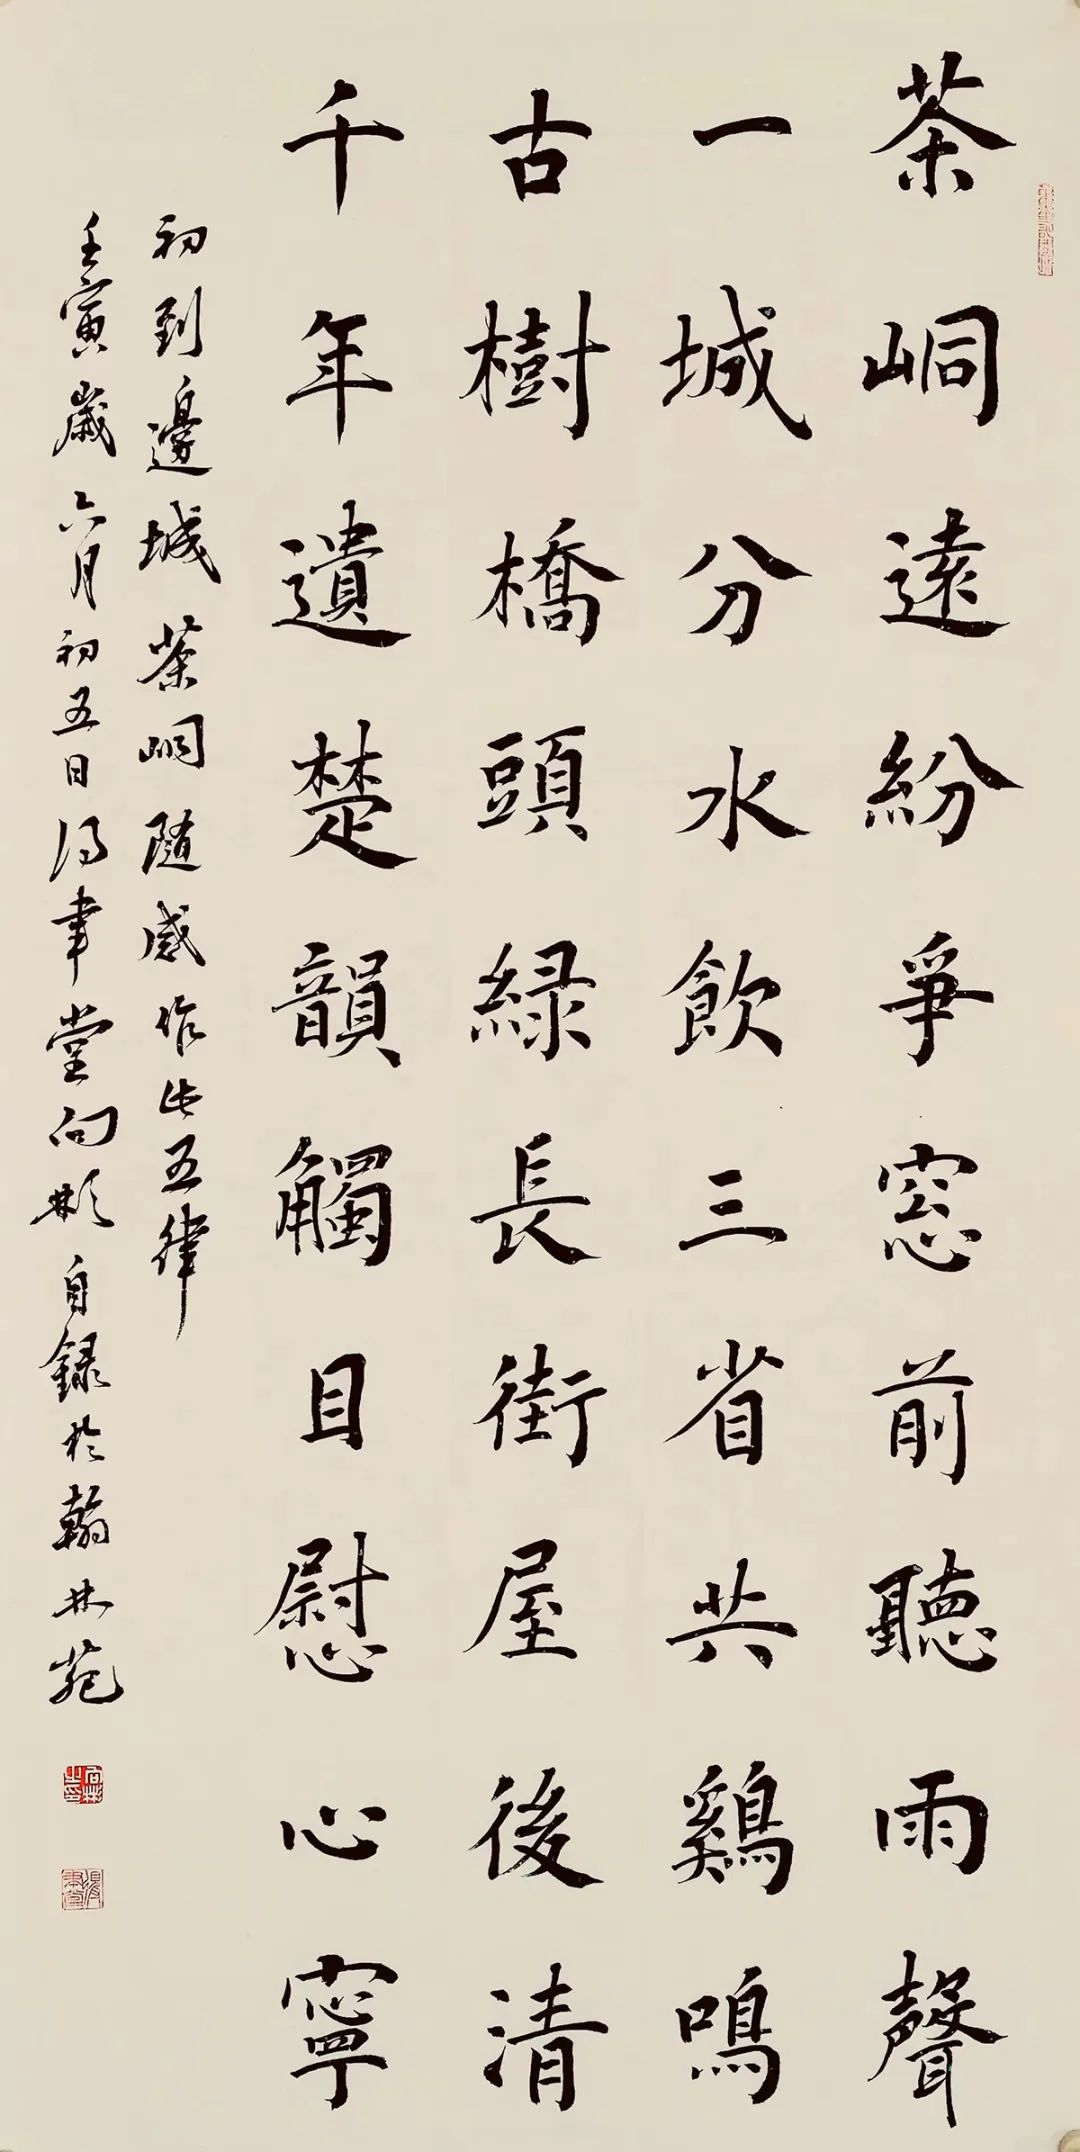 茶峒遠紛爭窓前聽雨聲
一城分水飲三省共鷄鳴
古樹橋頭綠長街屋後清
千年遺楚韻觸目慰心寧
初到邊城茶峒隨感作此五律
壬寅歲六月初五日得聿堂向彬自錄於翰林苑
向彬之印